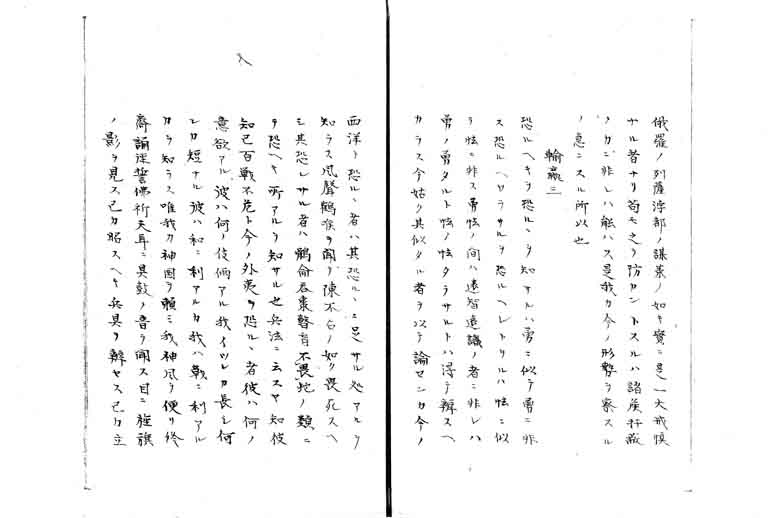 俄羅ノ列薩浮部ノ謀葉ノ如キ實ニ是一大戒慎
ナル者ナリ苟モ之ヲ防カントスルハ諸侯ノ
ノカニ非レハ能ハス是我カ今ノ形勢ヲ察スル
ノ急ニスル所以也
輸贏三
恐ルヘキヲ恐ルヽヲ知サルハ勇ニ似テ勇ニ非
ス恐ルヘカラサルヲ恐ルヘシトスルハ怯ニ似
テ怯ニ非ス勇怯ノ間ハ遠智達識ノ者ニ非レハ
勇ノ勇タルト怯ノ怯タラサルトハ得テ辨スヘ
カラス今姑ク其似タル者ヲ以テ論センカ今ノ
西洋ヲ恐ルヽ者ハ其恐ルヽニ足サル処アルヲ
知ラス風聲鶴唳ヲ聞テ陳不占ノ如ク畏死スヘ
シ其恐レサル者ハ鶻侖呑棗瞽盲不畏蛇ノ類ニ
テ恐ヘキ所アルヲ知サル也兵法ニ云スヤ知彼
知己百戰不危ト今ノ外夷ヲ恐ルヽ者彼ハ何ノ
意欲アル彼ハ何ノ伎倆アル我イツレカ長シ何
レカ短ナル彼ハ和ニ利アルカ我ハ戰ニ利アル
カヲ知ラス唯我カ神国ヲ頼ミ我神風ヲ便リ終
齋誦迷誓佛祈天耳ニ具鼓ノ音ヲ聞ス目ニ旌旗
ノ影ヲ見ス己カ帶スヘキ兵具ヲ辨セス己カ立